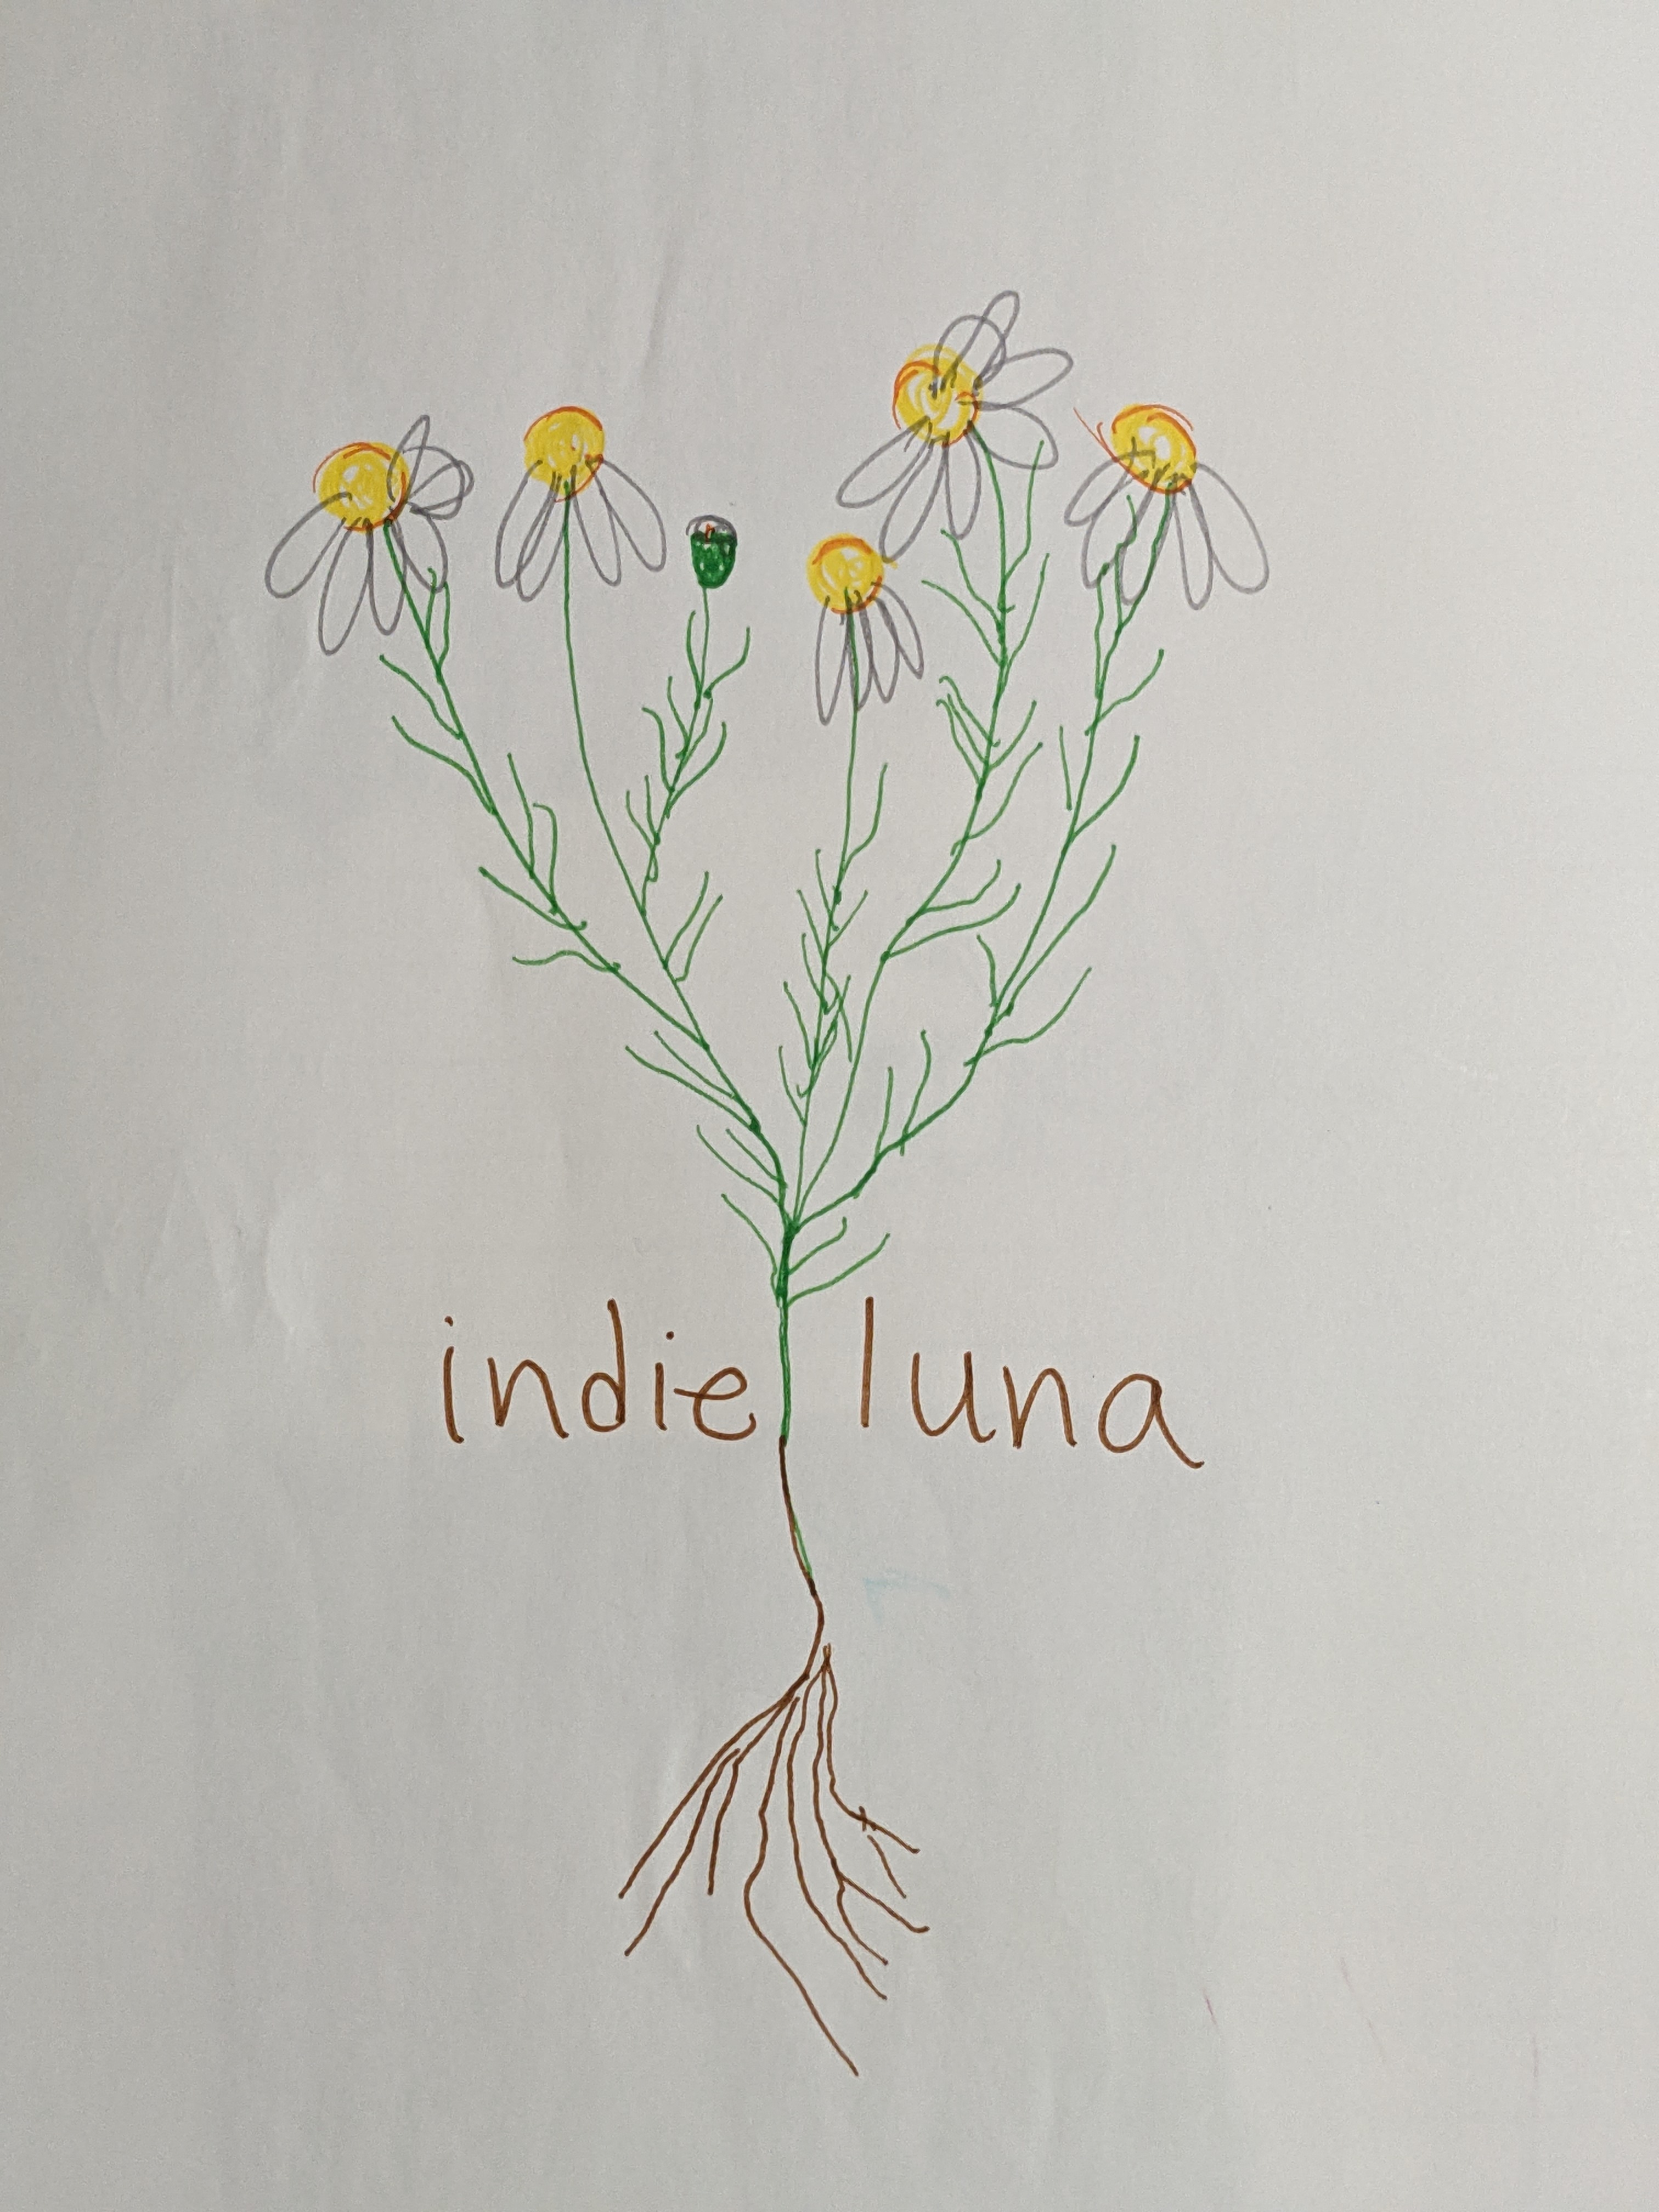 indie luna